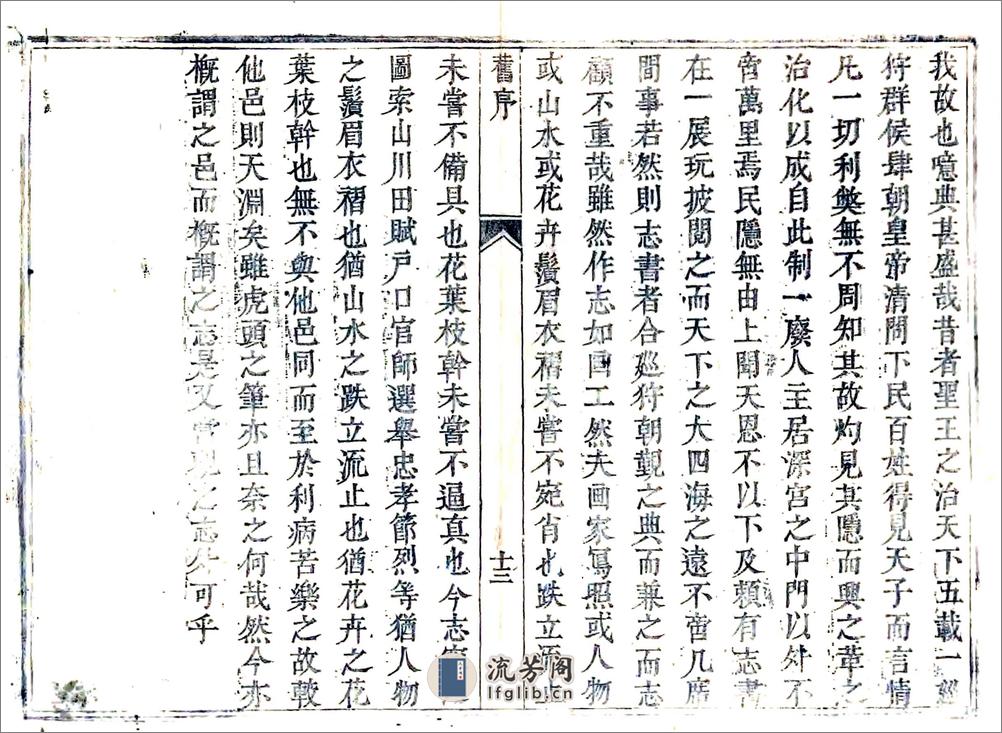 我故也噫典甚盛哉昔者聖王之治天下五載一巡
狩群侯肆朝皇帝清問下民百姓得見天子而言情
凡一切利獘無不周知其故灼見其隱而興之革之
治化以成自此制一廢人主居深宮之中門以外不
啻萬里焉民隱無由上聞天恩不以下及頼有志書
在一展玩披閱之而天下之大四海之遠不啻几席
間事若然則志書者合廵狩朝覲之典而兼之而志
顧不重哉雖然作志如國工然夫画家寫照或人物
或山水或花卉鬚眉衣褶夫嘗不宛肖也跌立流
舊序
十三
未嘗不備具也花葉枝幹未嘗不逼真也今志
圖索山川田賦戶口官師選舉忠孝節烈等猶人物
之鬚眉衣褶也猶山水之跌立流止也猶花卉之花
葉枝幹也無不與他邑同而至於利病苦樂之故較
他邑則天淵矣雖虎頭之筆亦且奈之何哉然今亦
概謂之邑而概謂之志是又當之志外可乎
流芳阁
lfglib.cn